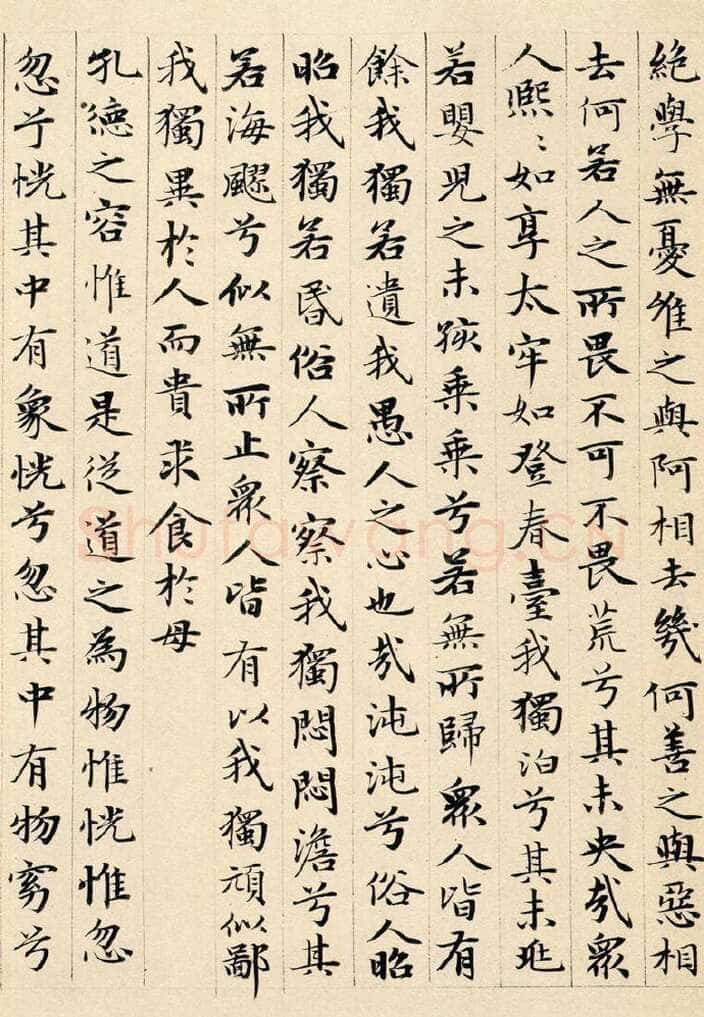 絕學無憂維之與阿相去幾何善之與惡相
去何若人之所畏不可不畏荒兮其未央哉眾
人熙〻如享太牢如登春臺我獨泊兮其未兆
若嬰兒之未孩乘乘兮若無所歸眾人皆有
餘我獨若遺我愚人之心也哉沌沌兮俗人昭
昭我獨若昏俗人察察我獨悶悶澹兮其
若海飂兮似無所止眾人皆有以我獨頑似鄙
我獨異於人而貴求食於母
孔德之容惟道是從道之為物惟恍惟忽
忽兮恍其中有象恍兮忽其中有物窈兮
Shufawang.cn